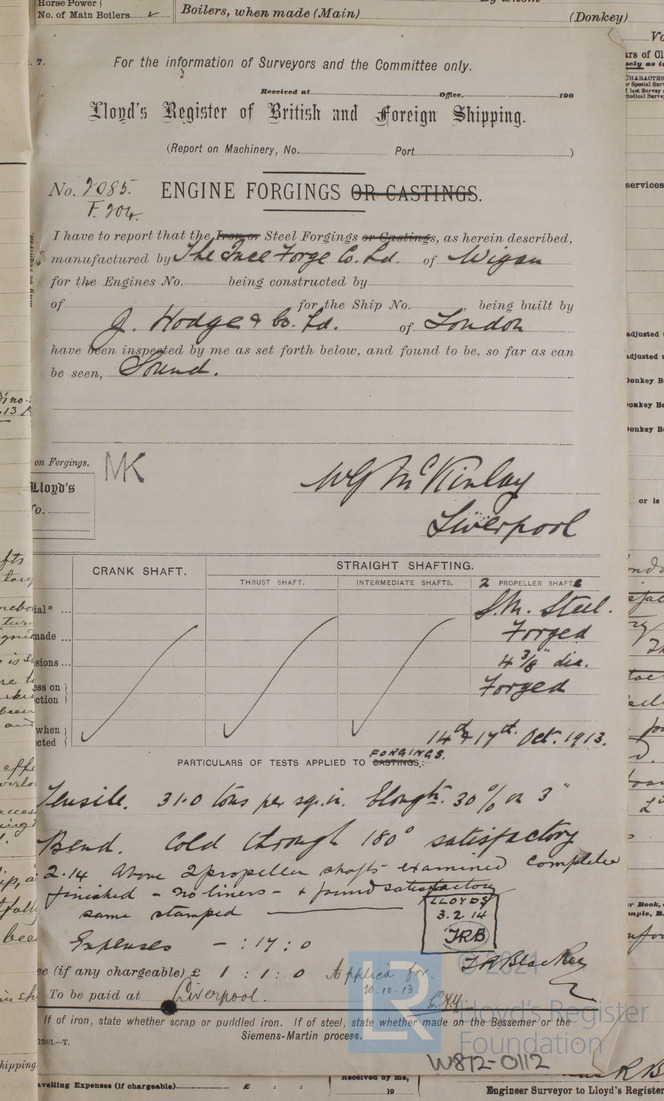 Horse Power
No. of Main Boilers
Boilers, when made (Main)
(Donkey)
For the information of Surveyors and the Committee only.
Received at Office, 190
Lloyd's Register of British and Foreign Shipping.
(Report on Machinery, No. Port )
No. 2085. ENGINE FORGINGS OR CASTINGS.
F. 204.
I have to report that the Iron or Steel Forgings or Castings, as herein described,
manufactured by The Ince Forge Co. Ld. of Wigan
for the Engines No. being constructed by
of for the Ship No. , being built by
J. Hodge & Co. Ld. of London
have been inspected by me as set forth below, and found to be, so far as can
be seen, Sound.
on Forgings.
MK
Lloyd's
WG McKinlay
Liverpool
CRANK SHAFT. STRAIGHT SHAFTING.
THRUST SHAFT. INTERMEDIATE SHAFTS. 2 PROPELLER SHAFTS
S.M. Steel.
made Forged
4 3/8" dia.
Forged
when
14th & 17th Oct. 1913.
FORGINGS.
PARTICULARS OF TESTS APPLIED TO CASTINGS:
Tensile. 31.0 tons per sq. in. Elongtn. 30% on 3"
Bend. Cold through 180° satisfactory
2.14 Above 2 propeller shafts examined complete
finished - no liners - & found satisfactory
same stamped
LLOYDS
3.2.14
JRB
Expenses - : 17 : 0
(if any chargeable) £ 1 : 1 : 0 Applied for
20.10.13
To be paid at Liverpool.
If of iron, state whether scrap or puddled iron. If of steel, state whether made on the Bessemer or the
Siemens-Martin process.
© 2021
LR
Lloyd's Register
Foundation
W872-0112
Travelling Expenses (if chargeable) £ : :
Received by me,
19
Engineer Surveyor to Lloyd's Register